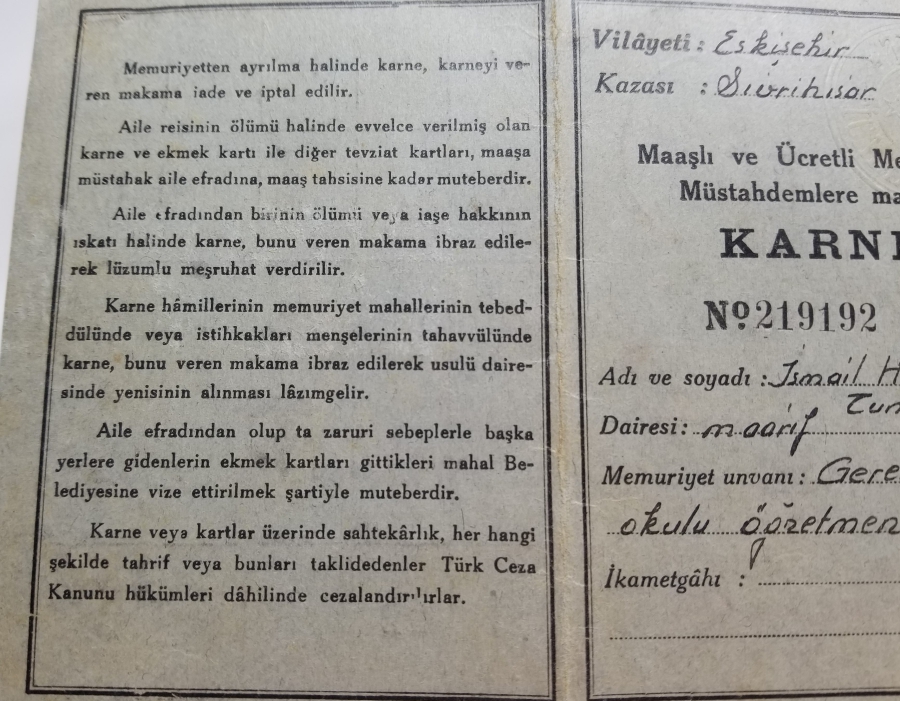 Memuriyetten ayrılma halinde karne, karneyi ve-
ren makama iade ve iptal edilir.
Aile reisinin ölümü halinde evvelce verilmiş olan
karne ve ekmek kartı ile diğer tevziat kartları, maaşa
müstahak aile efradına, maaş tahsisine kadar muteberdir.
Aile efradından birinin ölümü veya iaşe hakkının
ıskatı halinde karne, bunu veren makama ibraz edile-
rek lüzumlu meşruhat verdirilir.
Karne hâmillerinin memuriyet mahallerinin tebed-
dülünde veya istihkakları menşelerinin tahavvülünde
karne, bunu veren makama ibraz edilerek usulü daire-
sinde yenisinin alınması lâzımgelir.
Aile efradından olup ta zaruri sebeplerle başka
yerlere gidenlerin ekmek kartları gittikleri mahal Be-
lediyesine vize ettirilmek şartiyle muteberdir.
Karne veya kartlar üzerinde sahtekârlık, her hangi
şekilde tahrif veya bunları taklidedenler Türk Ceza
Kanunu hükümleri dâhilinde cezalandırılırlar.
Vilâyeti : Eskişehir
Kazası : Sivrihisar
Maaşlı ve Ücretli Me
Müstahdemlere ma
KARN
No 219192
Adı ve soyadı : İsmail H
Tun
Dairesi : maarif
Memuriyet unvanı : Gere
okulu öğretmen
İkametgâhı :